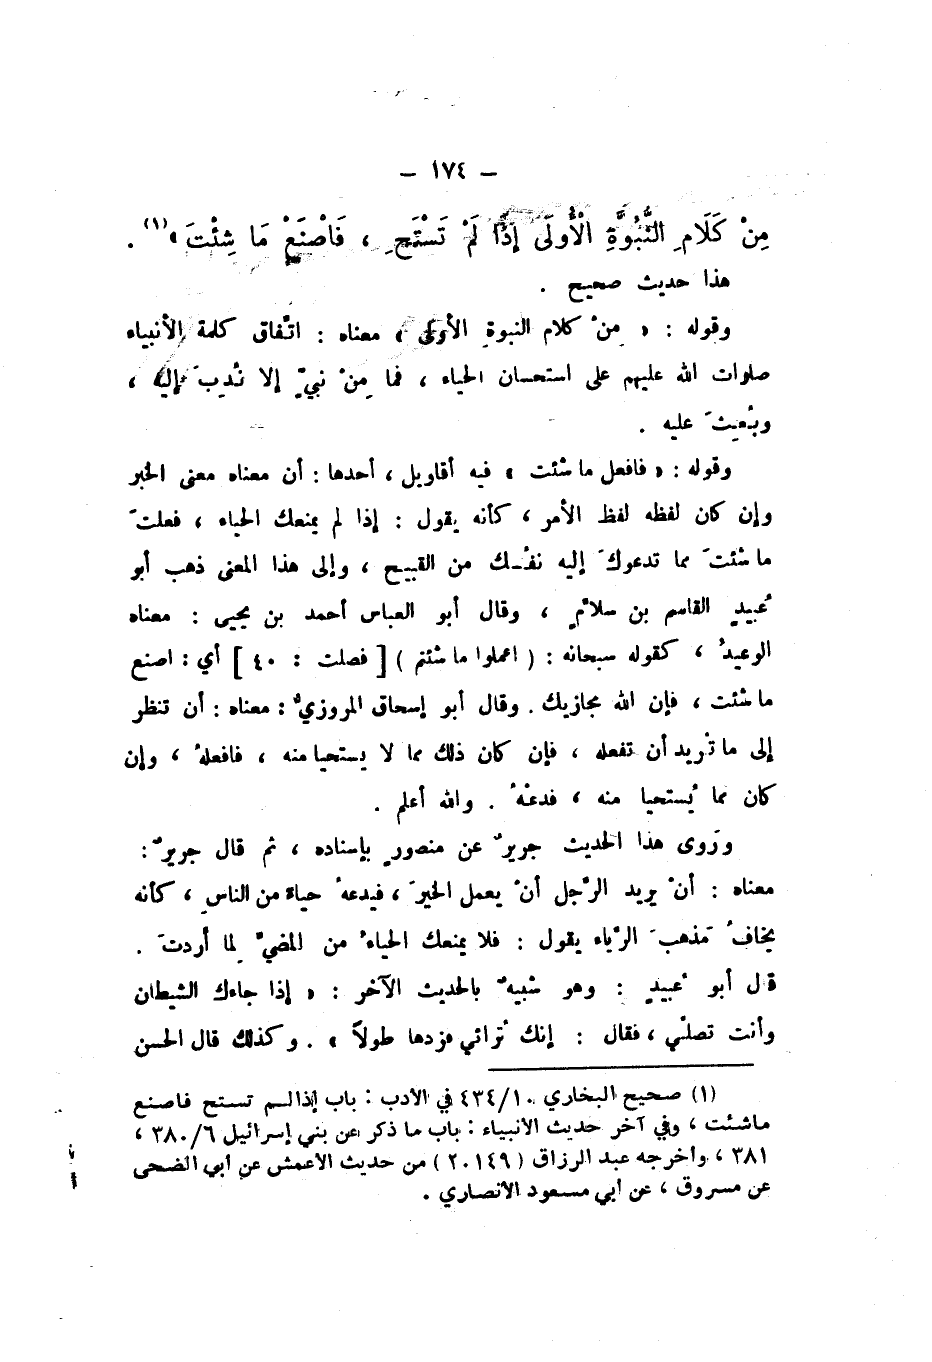 – ١٧٤ –
مِنْ كَلَامِ النُّبُوَّةِ الْأُولَى إِذَا لَمْ تَسْتَحِ ، فَاصْنَعْ مَا شِئْتَ »(١) .
هذا حديث صحيح .
وقوله : « مِنْ كلام النبوةِ الأولى » معناه : اتّفاق كلمة الأنبياء
صلوات الله عليهم على استحسان الحياء ، فما مِنْ نبيٍّ إلا نُدِبَ إليه ،
وبُعِثَ عليه .
وقوله : « فافعل ما شئت » فيه أقاويل ، أحدها : أن معناه معنى الخبر
وإن كان لفظه لفظ الأمر ، كأنه يقول : إذا لم يمنعك الحياء ، فعلتَ
ما شئتَ مما تدعوكَ إليه نفسك من القبيح ، وإلى هذا المعنى ذهب أبو
عُبيدٍ القاسم بن سلامٍ ، وقال أبو العباس أحمد بن يحيى : معناه
الوعيدُ ، كقوله سبحانه : ( اعملوا ما شئتم ) [ فصلت : ٤٠ ] أي : اصنع
ما شئت ، فإن الله مجازيك . وقال أبو إسحاق المروزيُّ : معناه : أن تنظر
إلى ما تُريد أن تفعله ، فإن كان ذلك مما لا يستحيا منه ، فافعلهُ ، وإن
كان مما يُستحيا منه ، فدعْهُ . والله أعلم .
ورَوى هذا الحديث جريرٌ عن منصورٍ بإسناده ، ثم قال جريرٌ :
معناه : أنْ يريد الرّجل أنْ يعمل الخيرَ ، فيدعهُ حياءً من الناسِ ، كأنه
يخافُ مَذهبَ الرّياء يقول : فلا يمنعك الحياءُ من المضيِّ لِما أردتَ .
قال أبو عُبيدٍ : وهو شبيهٌ بالحديث الآخر : « إذا جاءك الشيطان
وأنت تصلّي ، فقال : إنك تُرائي فزدها طولاً » . وكذلك قال الحسن
(١) صحيح البخاري ٤٣٤/١٠ في الأدب : باب إذا لم تستح فاصنع
ماشئت ، وفي آخر حديث الأنبياء : باب ما ذكر عن بني إسرائيل ٣٨٠/٦ ،
٣٨١ ، وأخرجه عبد الرزاق ( ٢٠١٤٩ ) من حديث الأعمش عن أبي الضحى
عن مسروق ، عن أبي مسعود الأنصاري .